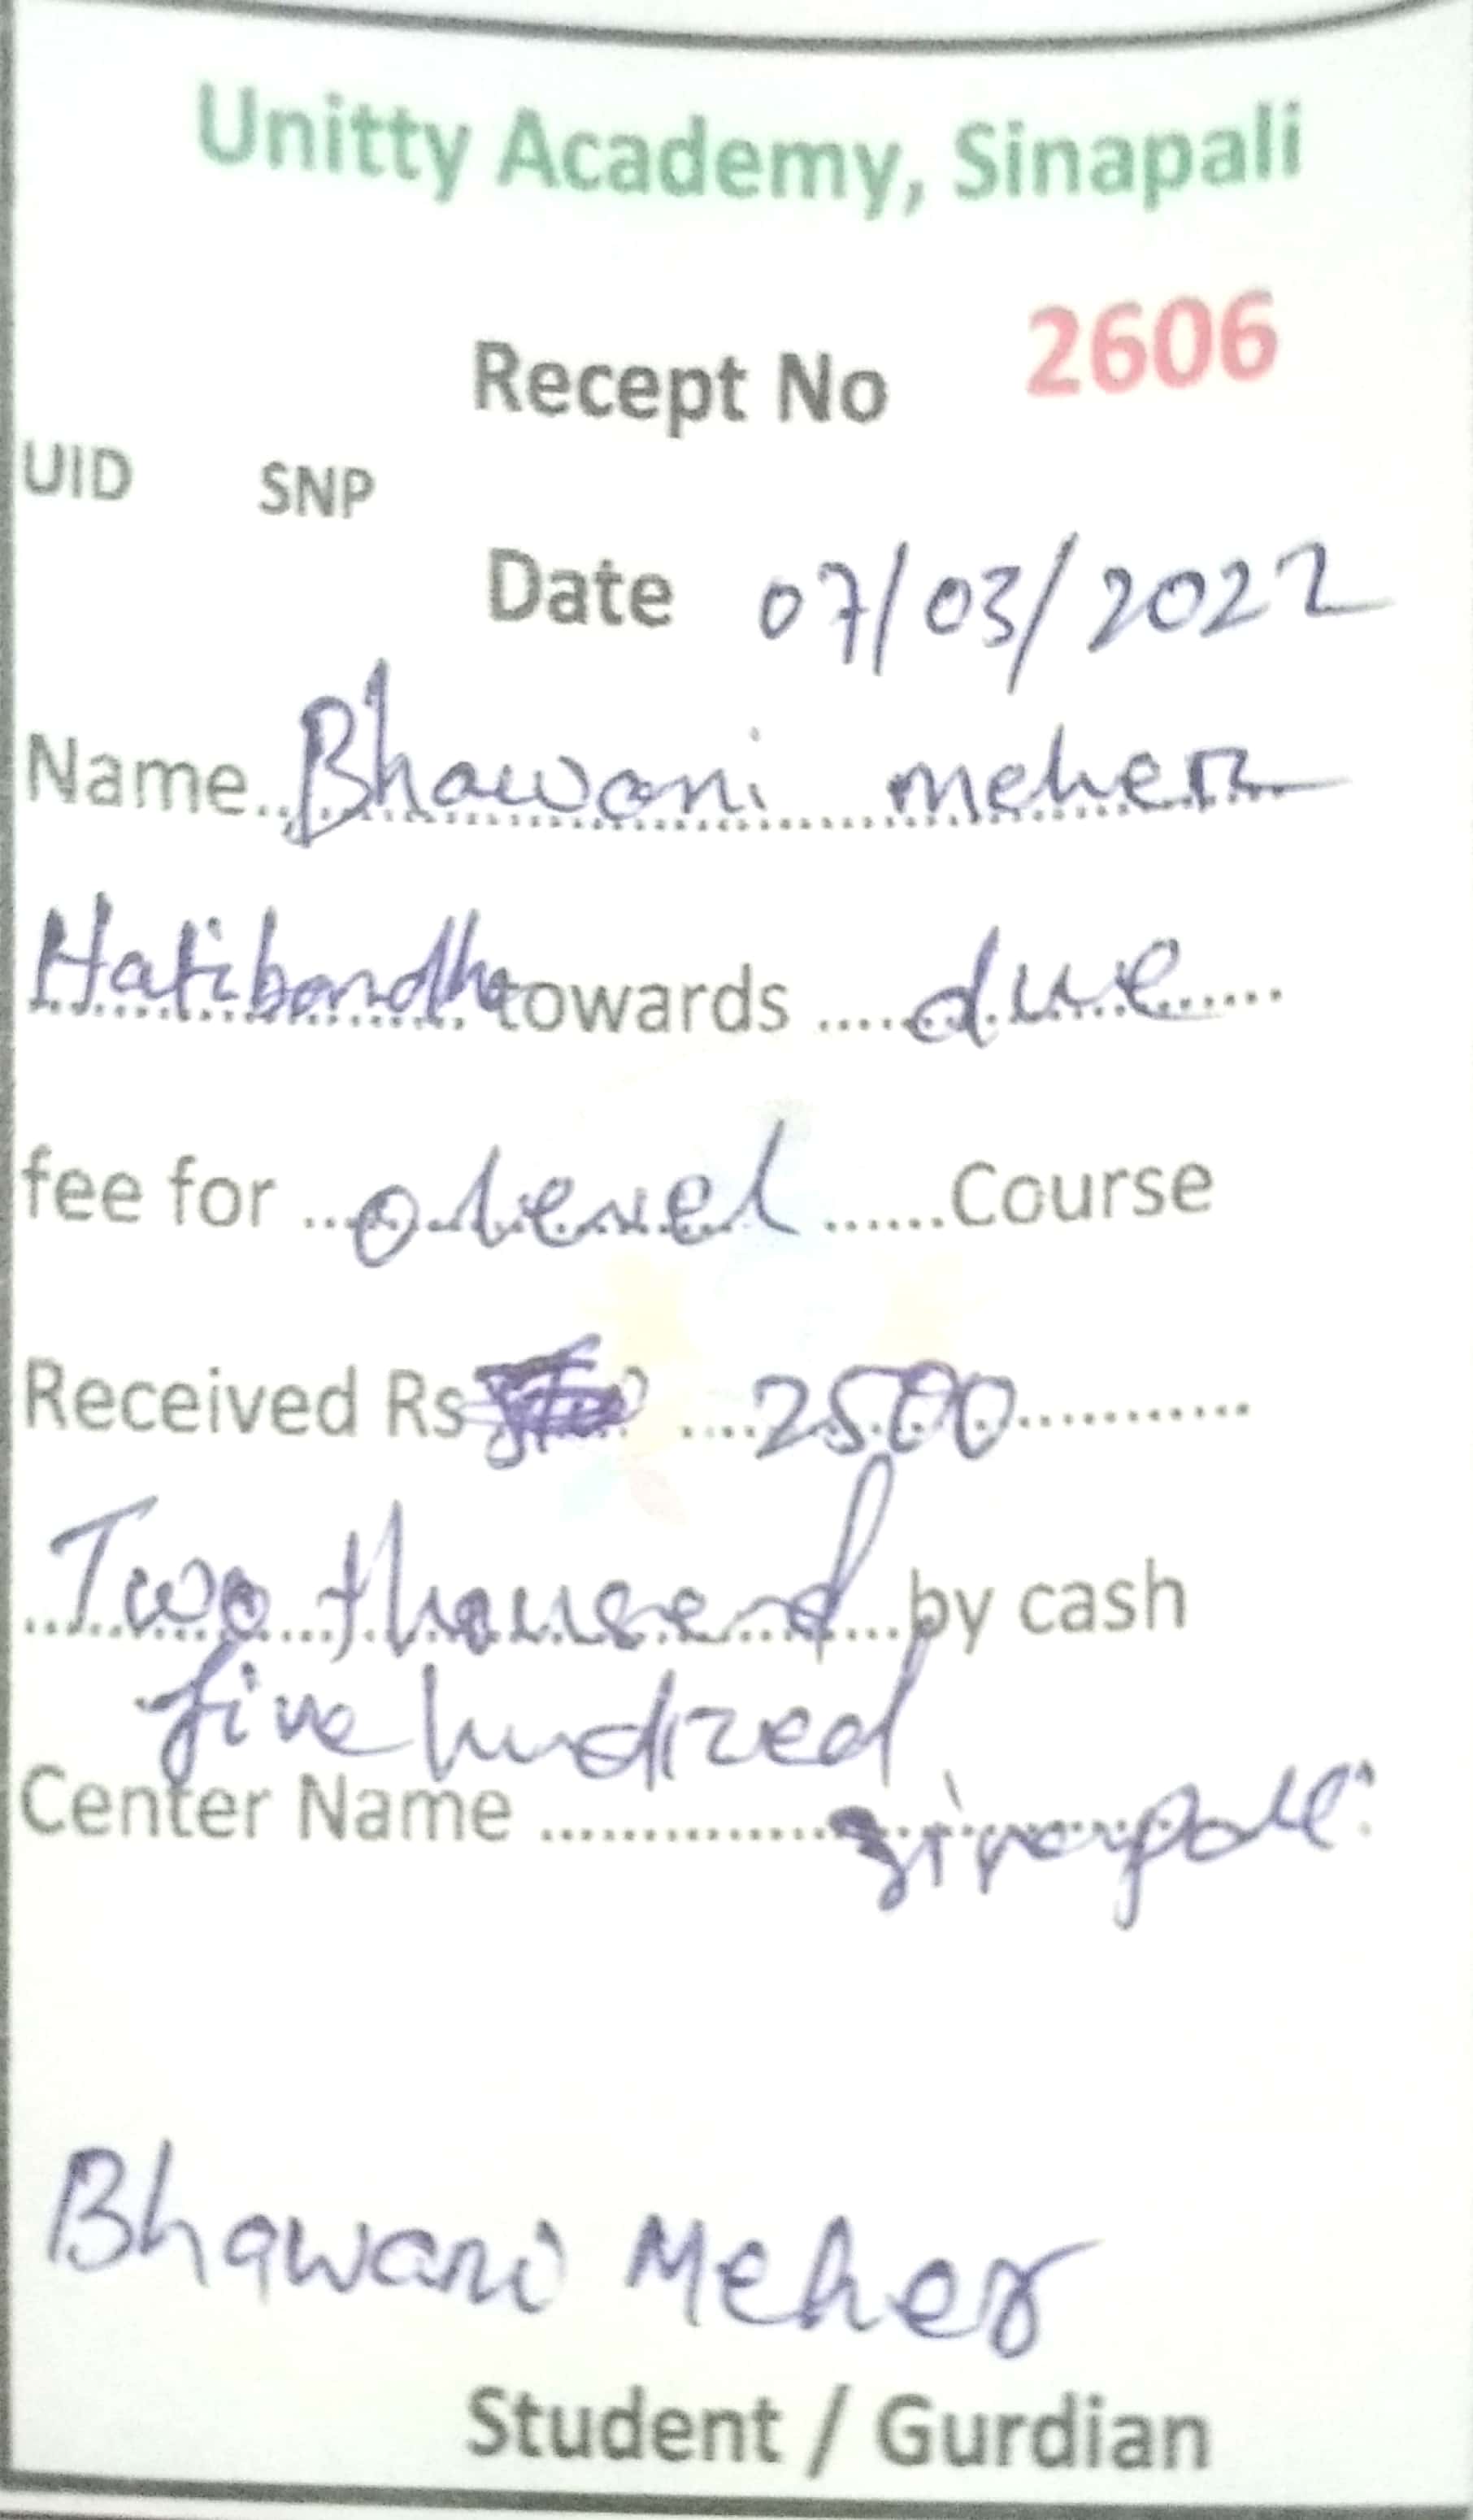 Unitty Academy, Sinapali
Recept No 2606
UID SNP
Date 07/03/2022
Name Bhawani meher
Hatibandha towards due
fee for o level Course
Received Rs 2500
Two thousend by cash
five hundred
Center Name Sinapali
Bhawani Meher
Student / Gurdian